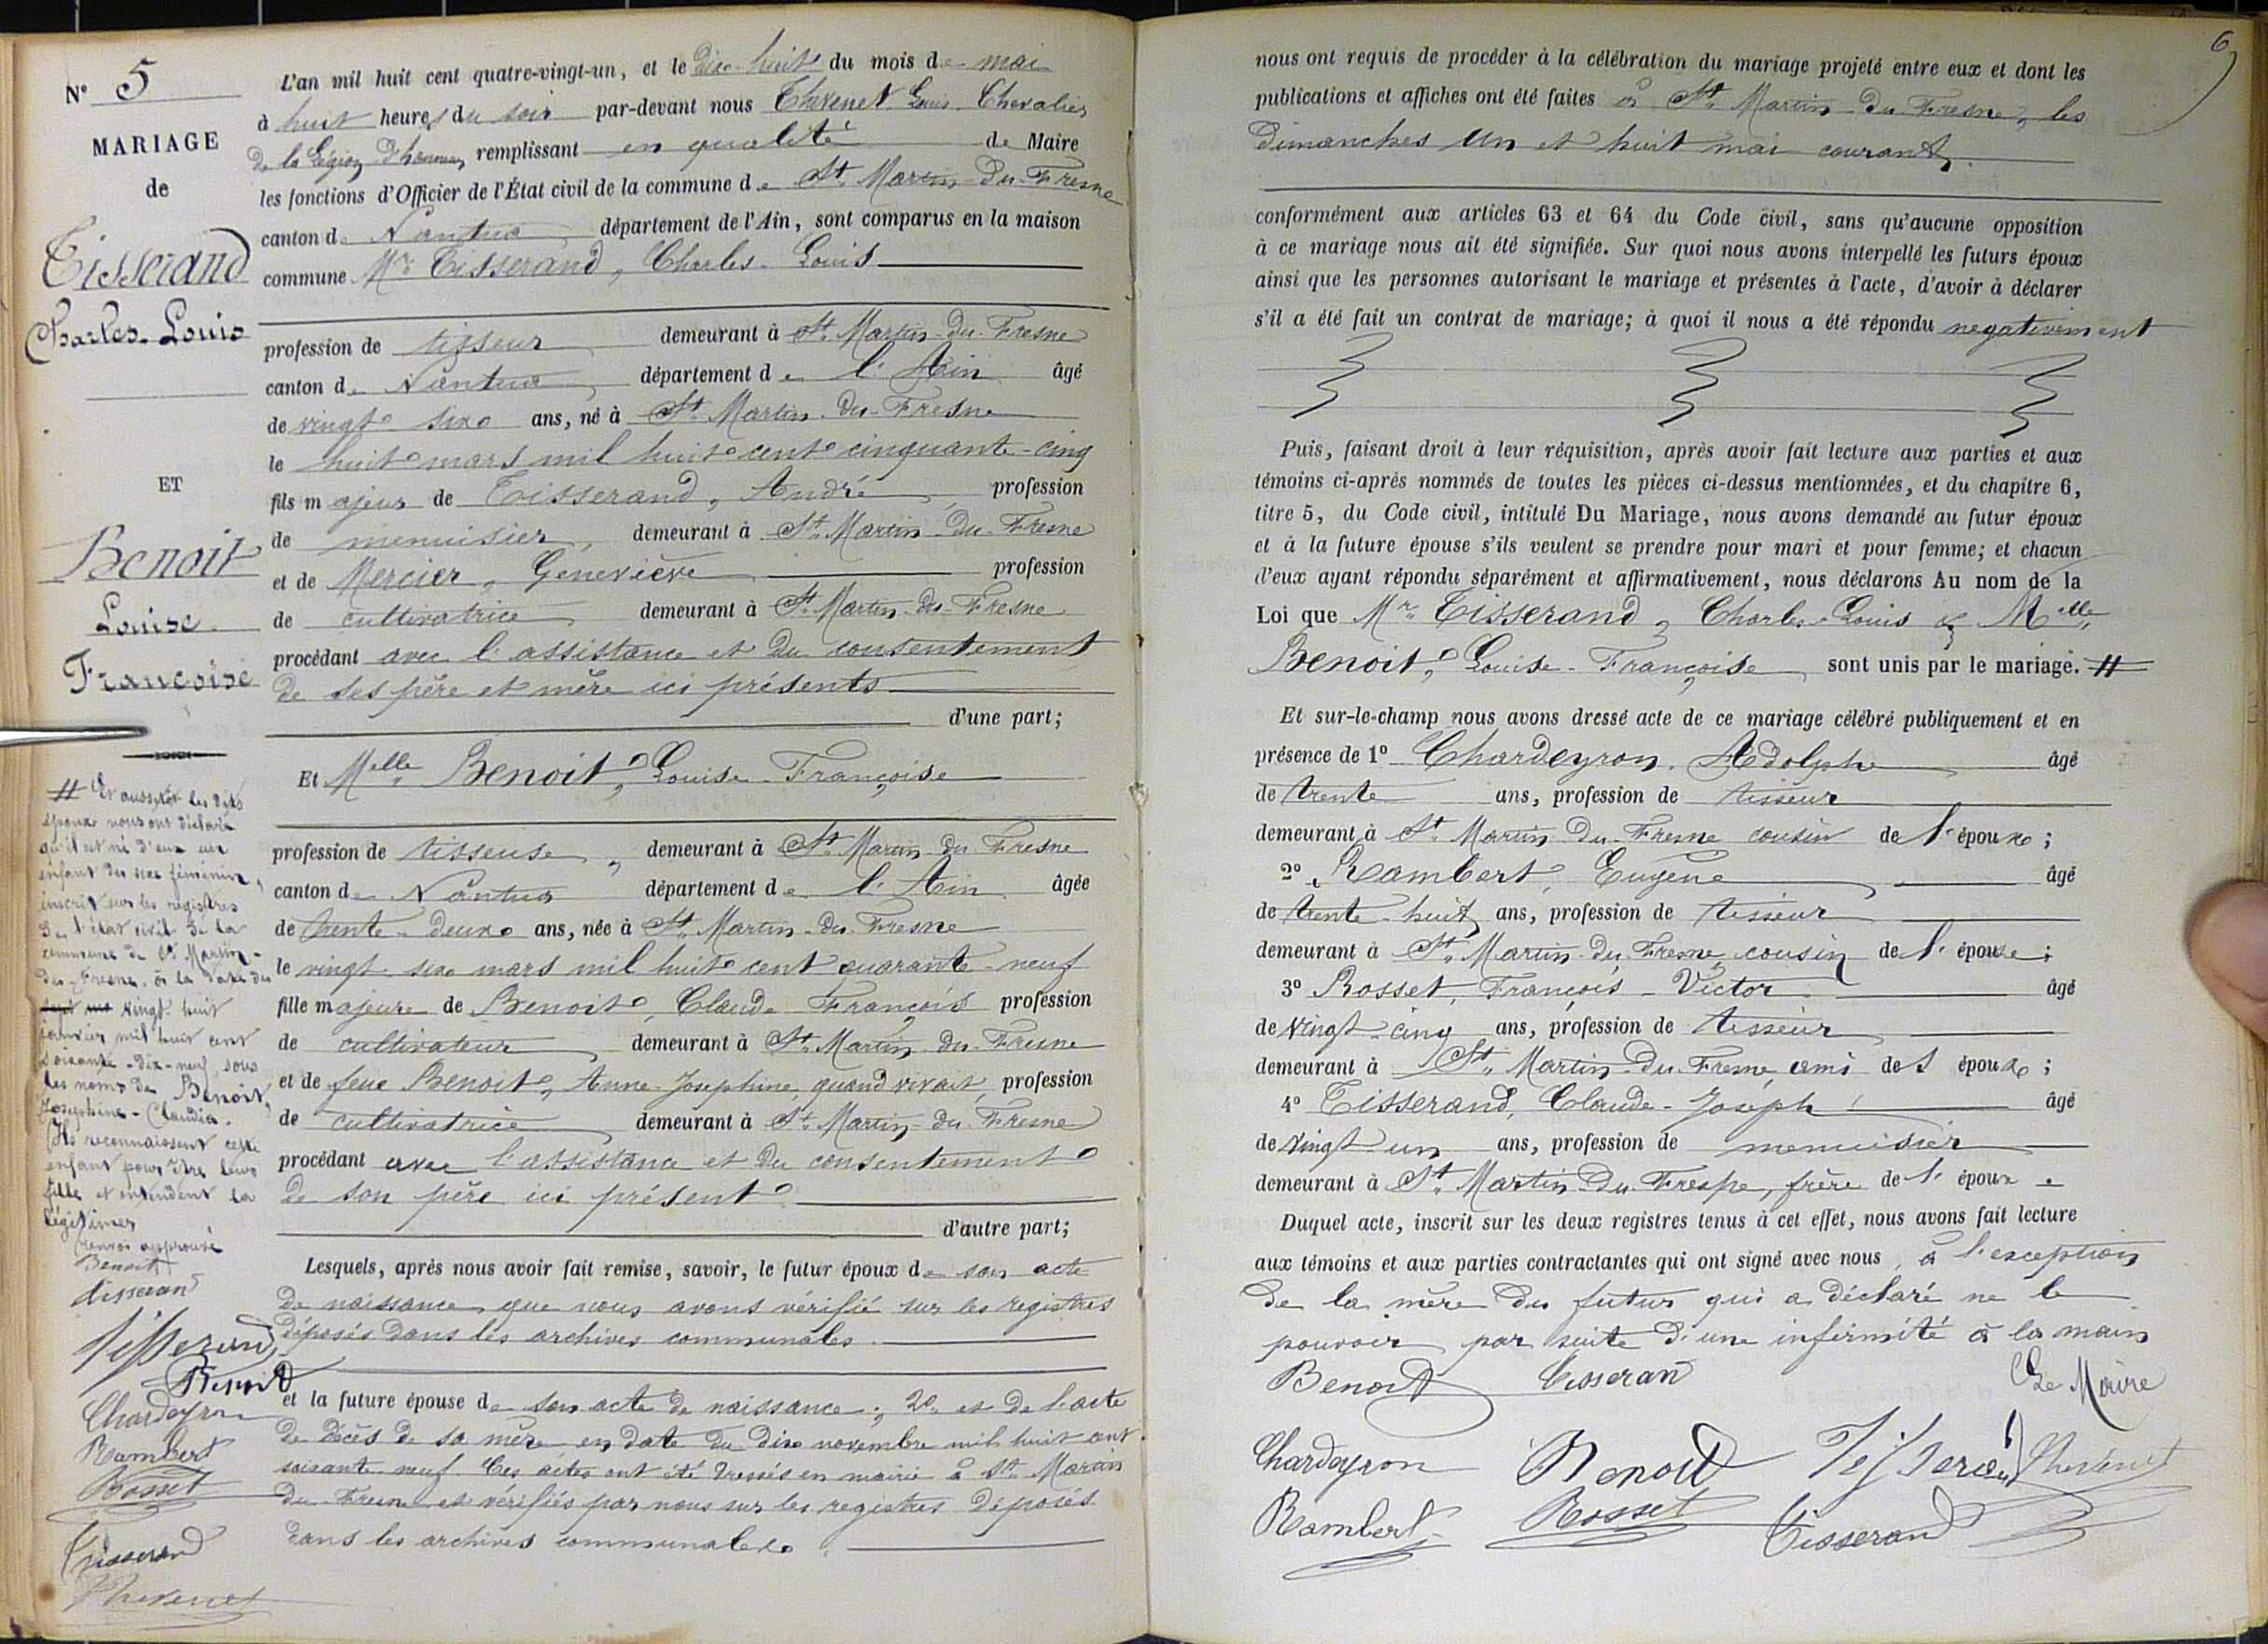 N° 5
MARIAGE
de
Tisserand
Charles-Louis
ET
Benoit
Louise
Françoise
L'an mil huit cent quatre-vingt-un, et le dix-huit du mois de mai
à huit heures du soir par-devant nous Thévenet Louis Chevalier
de la Légion d'honneur, remplissant en qualité de Maire
les fonctions d'Officier de l'État civil de la commune de St Martin-du-Fresne
canton de Nantua, département de l'Ain, sont comparus en la maison
commune Mr Tisserand, Charles-Louis
profession de tisseur demeurant à St Martin-du-Fresne
canton de Nantua, département de l'Ain âgé
de vingt-six ans, né à St Martin-du-Fresne
le huit mars mil huit cent cinquante-cinq
fils majeur de Tisserand, André, profession
de menuisier, demeurant à St Martin-du-Fresne
et de Mercier, Geneviève profession
de cultivatrice demeurant à St Martin-du-Fresne
procédant avec l'assistance et du consentement
de ses père et mère ici présents
d'une part;
Et Melle Benoit, Louise-Françoise
profession de tisseuse, demeurant à St Martin-du-Fresne
canton de Nantua département de l'Ain âgée
de trente-deux ans, née à St Martin-du-Fresne
le vingt-six mars mil huit cent quarante-neuf
fille majeure de Benoit, Claude François profession
de cultivateur demeurant à St Martin-du-Fresne
et de feue Benoit, Anne-Josephine, quand vivait, profession
de cultivatrice demeurant à St Martin-du-Fresne
procédant avec l'assistance et du consentement
de son père ici présent
d'autre part;
Lesquels, après nous avoir fait remise, savoir, le futur époux de son acte
de naissance que nous avons vérifié sur les registres
déposés dans les archives communales
et la future épouse de son acte de naissance; 2° et de l'acte
de décès de sa mère en date du dix novembre mil huit cent
soixante-neuf. Ces actes ont été dressés en mairie à St Martin
du-Fresne et vérifiés par nous sur les registres déposés
dans les archives communales.
# Et aussitôt les dits
époux nous ont déclaré
qu'il est né d'eux un
enfant du sexe féminin,
inscrit sur les registres
de l'état civil de la
commune de St Martin-
du-Fresne à la date du
vingt huit
janvier mil huit cent
soixante-dix-neuf, sous
les noms de Benoit,
Josephine-Claudia.
Ils reconnaissent cette
enfant pour être leur
fille et entendent la
légitimer
renvoi approuvé
Benoit
tisseran
Tisserand
Benoit
Chardeyron
Rambert
Rosset
Tisserand
Thévenet
6
nous ont requis de procéder à la célébration du mariage projeté entre eux et dont les
publications et affiches ont été faites à St Martin-du-Fresne, les
Dimanches un et huit mai courant.
conformément aux articles 63 et 64 du Code civil, sans qu'aucune opposition
à ce mariage nous ait été signifiée. Sur quoi nous avons interpellé les futurs époux
ainsi que les personnes autorisant le mariage et présentes à l'acte, d'avoir à déclarer
s'il a été fait un contrat de mariage; à quoi il nous a été répondu negativement
Puis, faisant droit à leur réquisition, après avoir fait lecture aux parties et aux
témoins ci-après nommés de toutes les pièces ci-dessus mentionnées, et du chapitre 6,
titre 5, du Code civil, intitulé Du Mariage, nous avons demandé au futur époux
et à la future épouse s'ils veulent se prendre pour mari et pour femme; et chacun
d'eux ayant répondu séparément et affirmativement, nous déclarons Au nom de la
Loi que Mr Tisserand, Charles-Louis & Melle
Benoit, Louise-Françoise sont unis par le mariage. #
Et sur-le-champ nous avons dressé acte de ce mariage célébré publiquement et en
présence de 1° Chardeyron, Adolphe âgé
de trente ans, profession de tisseur
demeurant à St Martin-du-Fresne cousin de l'époux;
2° Rambert, Eugène âgé
de trente-huit ans, profession de tisseur
demeurant à St Martin-du-Fresne, cousin de l'épouse;
3° Rosset, François-Victor âgé
de vingt-cinq ans, profession de tisseur
demeurant à St Martin-du-Fresne, ami des époux;
4° Tisserand, Claude-Joseph âgé
de vingt-un ans, profession de menuisier
demeurant à St Martin-du-Fresne, frère de l'époux.
Duquel acte, inscrit sur les deux registres tenus à cet effet, nous avons fait lecture
aux témoins et aux parties contractantes qui ont signé avec nous, à l'exception
de la mère du futur qui a déclaré ne le
pouvoir par suite d'une infirmité à la main
Benoit Tisseran Le Maire
Chardeyron Benoit Tisserand Thévenet
Rambert Rosset Tisserand